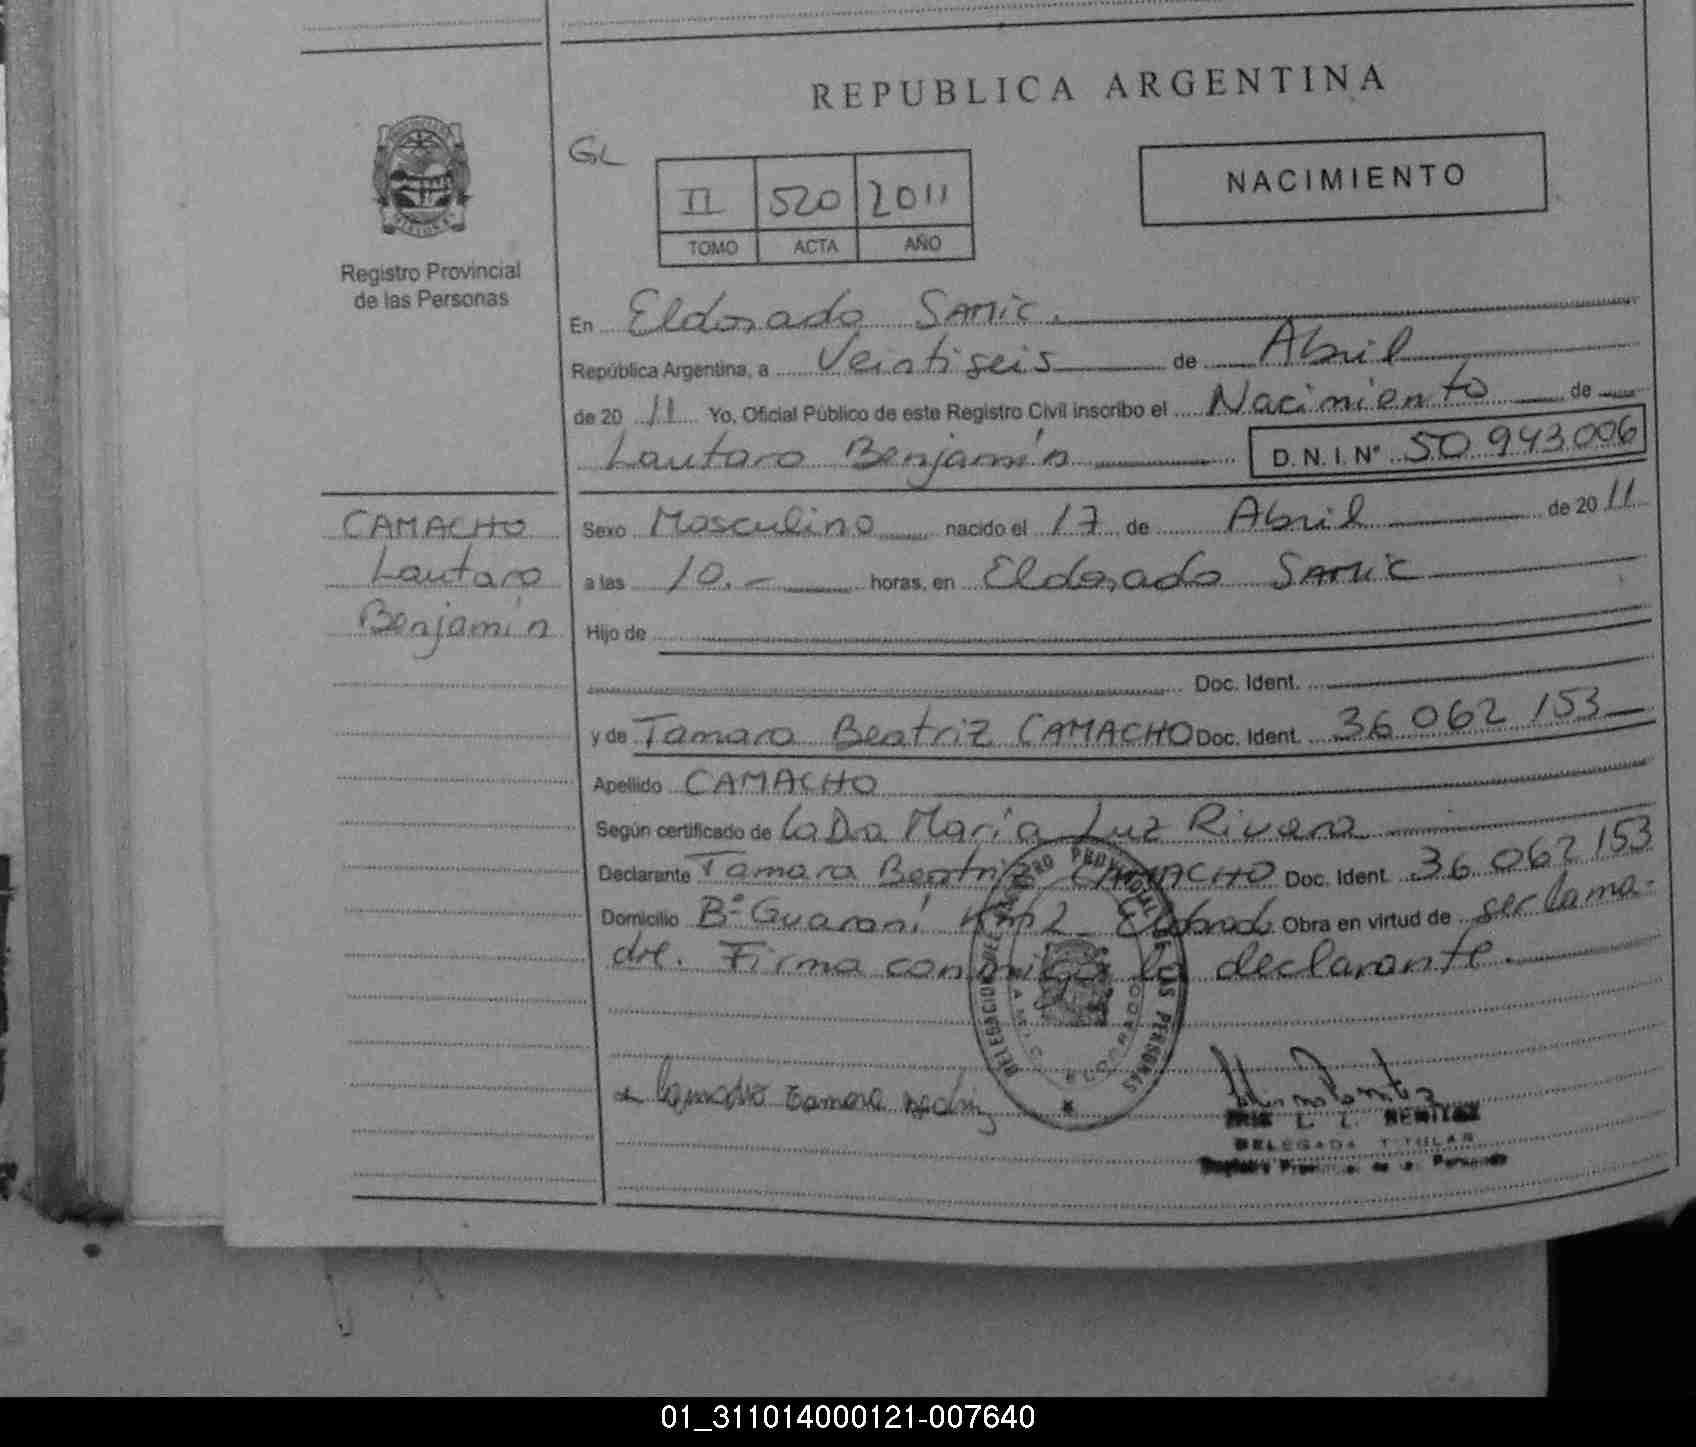 REPUBLICA ARGENTINA
GL
II 520 2011
TOMO ACTA AÑO
NACIMIENTO
Registro Provincial
de las Personas
En Eldorado SAMIC.
República Argentina, a Veintiseis de Abril
de 20 11 Yo, Oficial Público de este Registro Civil inscribo el Nacimiento de
Lautaro Benjamín D. N. I. Nº 50 943 006
CAMACHO
Lautaro
Benjamín
Sexo Masculino nacido el 17 de Abril de 20 11
a las 10.- horas, en Eldorado SAMIC
Hijo de
Doc. Ident.
y de Tamara Beatriz CAMACHO Doc. Ident. 36 062 153
Apellido CAMACHO
Según certificado de la Dra María Luz Rivero
Declarante Tamara Beatriz CAMACHO Doc. Ident. 36 062 153
Domicilio Bº Guaraní Km 2 Eldorado Obra en virtud de ser la ma-
dre. Firma conmigo la declarante.
DELEGACION REGISTRO PROVINCIAL DE LAS PERSONAS
SAMIC ELDORADO
Camacho Tamara
L. L. BENITEZ
DELEGADA TITULAR
Registro Provincial de las Personas
01_311014000121-007640